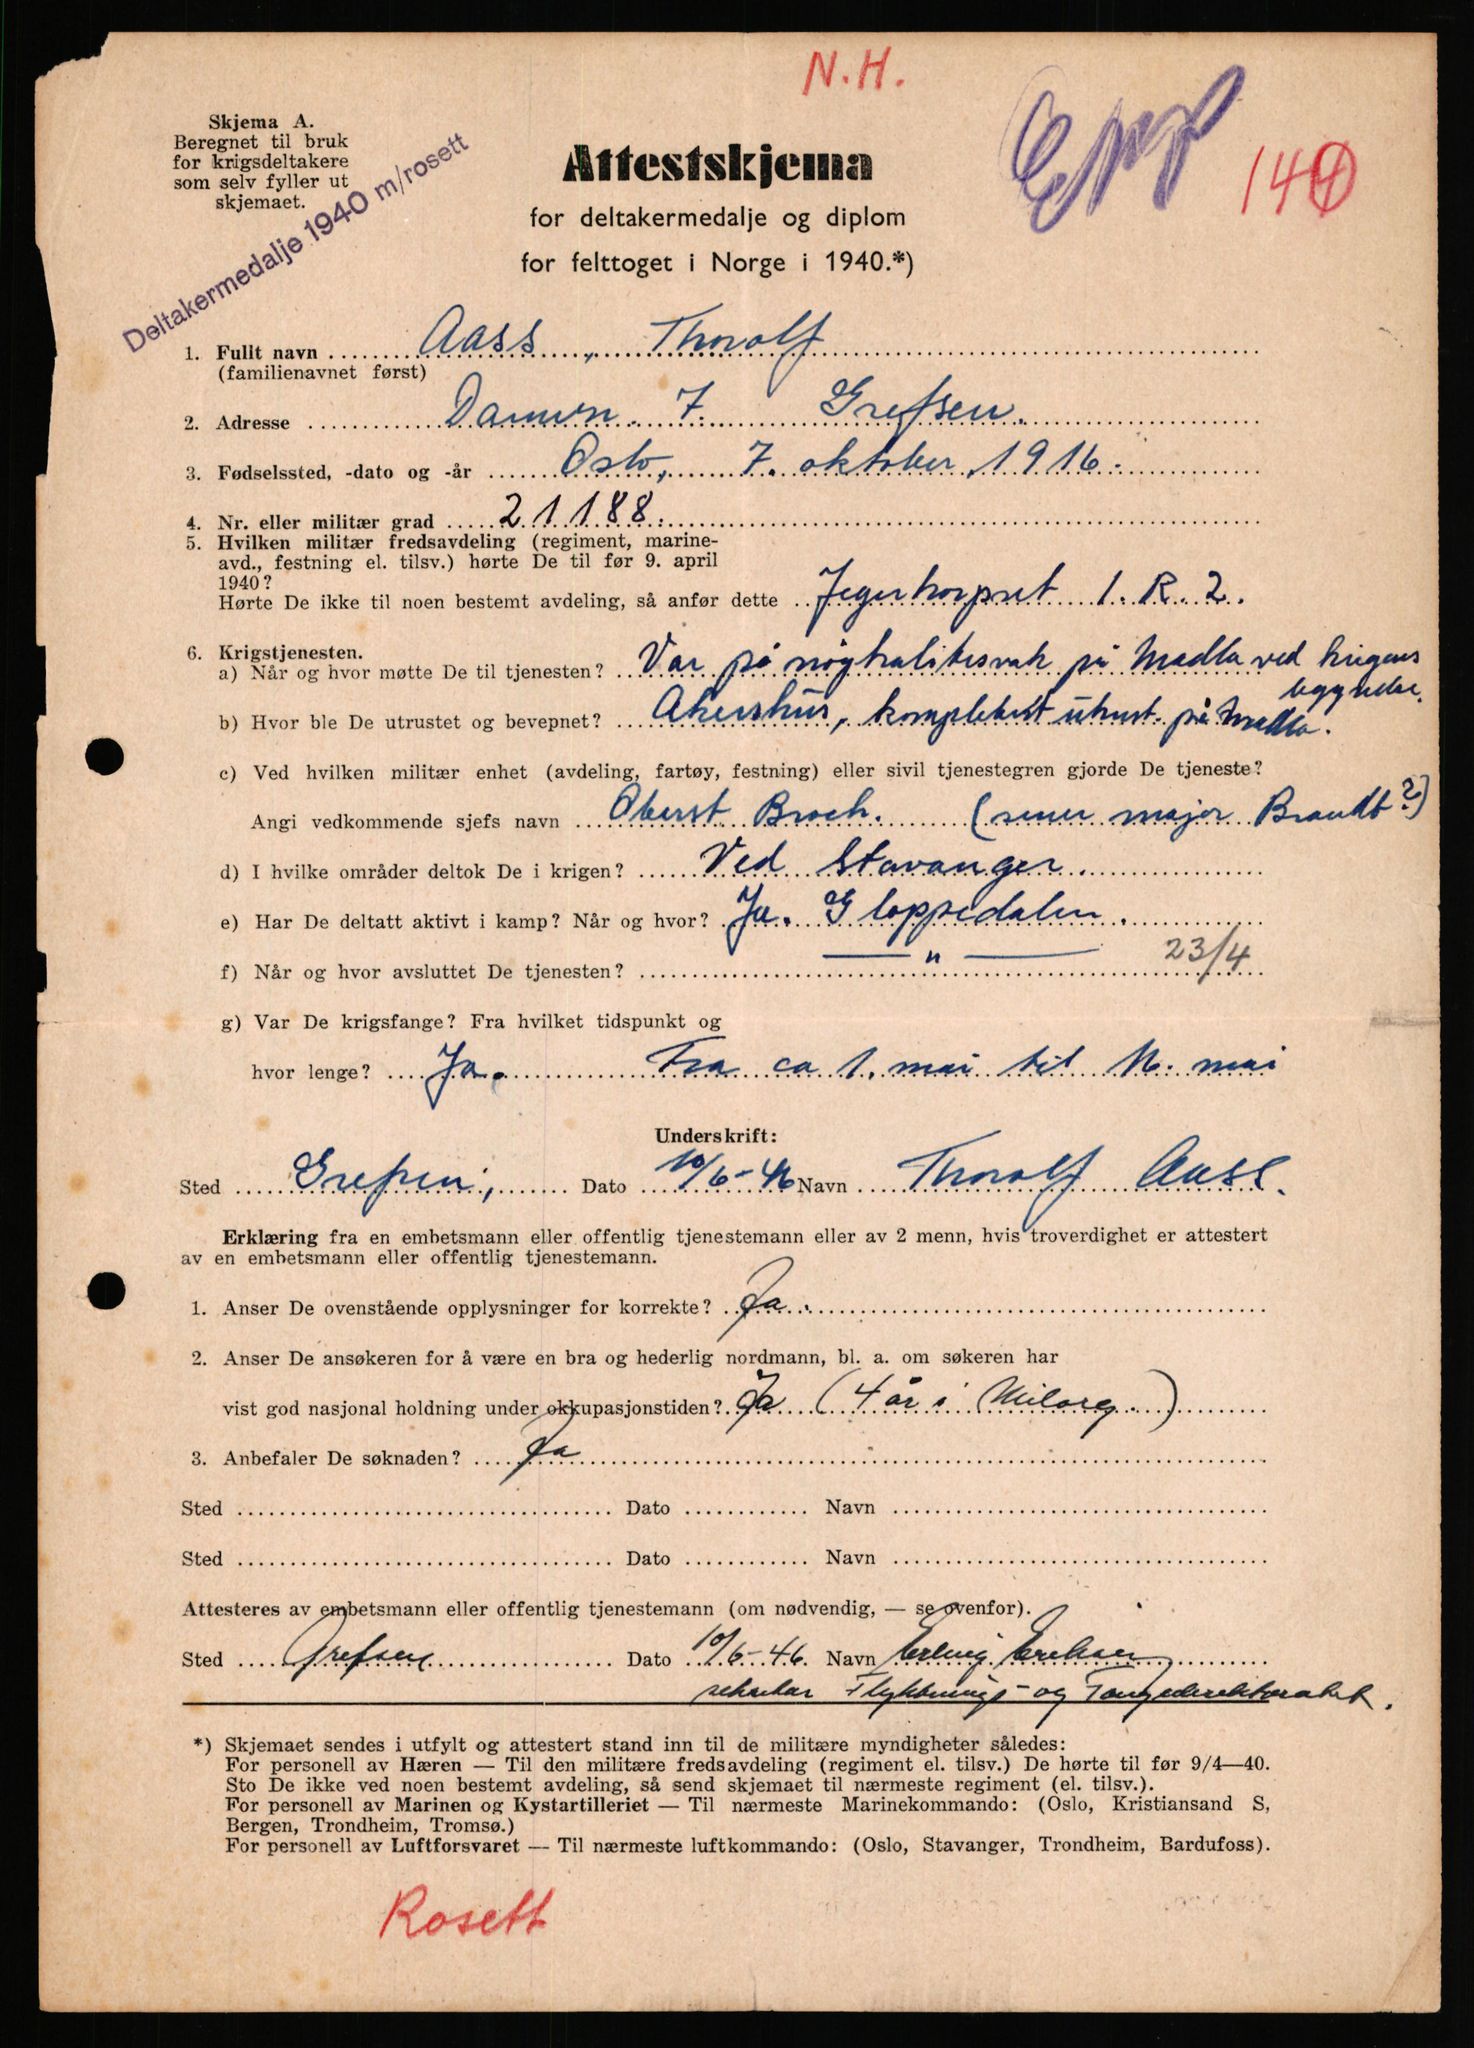 N.H.
Skjema A.
Beregnet til bruk
for krigsdeltakere
som selv fyller ut
skjemaet.
Deltakermedalje 1940 m/rosett
Attestskjema
for deltakermedalje og diplom
for felttoget i Norge i 1940.*)
1. Fullt navn Aass, Thorolf
(familienavnet først)
2. Adresse 7. Grefsen.
3. Fødselssted, -dato og -år Oslo, 7. oktober 1916.
4. Nr. eller militær grad 21188.
5. Hvilken militær fredsavdeling (regiment, marine-
avd., festning el. tilsv.) hørte De til før 9. april
1940?
Hørte De ikke til noen bestemt avdeling, så anfør dette Jegerkorpset I. R. 2.
6. Krigstjenesten.
a) Når og hvor møtte De til tjenesten? Var på nøytralitesvak på Madla ved krigens
begyndelse.
b) Hvor ble De utrustet og bevepnet? Akershus, komplettert utrust. på Madla.
c) Ved hvilken militær enhet (avdeling, fartøy, festning) eller sivil tjenestegren gjorde De tjeneste?
Angi vedkommende sjefs navn Oberst Broch. (sener major Brandt?)
d) I hvilke områder deltok De i krigen? Ved Stavanger.
e) Har De deltatt aktivt i kamp? Når og hvor? Ja. Gloppedalen.
f) Når og hvor avsluttet De tjenesten? — " — 23/4
g) Var De krigsfange? Fra hvilket tidspunkt og
hvor lenge? Ja. Fra ca 1. mai til 16. mai
Underskrift:
Sted Grefsen, Dato 10/6-46 Navn Thorolf Aass.
Erklæring fra en embetsmann eller offentlig tjenestemann eller av 2 menn, hvis troverdighet er attestert
av en embetsmann eller offentlig tjenestemann.
1. Anser De ovenstående opplysninger for korrekte? Ja.
2. Anser De ansøkeren for å være en bra og hederlig nordmann, bl. a. om søkeren har
vist god nasjonal holdning under okkupasjonstiden? Ja (4 år i Milorg.)
3. Anbefaler De søknaden? Ja
Sted Dato Navn
Sted Dato Navn
Attesteres av embetsmann eller offentlig tjenestemann (om nødvendig, — se ovenfor).
Sted Grefsen Dato 10/6-46. Navn Erling Eriksen
sekretær Flyktnings- og Fangedirektoratet.
*) Skjemaet sendes i utfylt og attestert stand inn til de militære myndigheter således:
For personell av Hæren — Til den militære fredsavdeling (regiment el. tilsv.) De hørte til før 9/4—40.
Sto De ikke ved noen bestemt avdeling, så send skjemaet til nærmeste regiment (el. tilsv.).
For personell av Marinen og Kystartilleriet — Til nærmeste Marinekommando: (Oslo, Kristiansand S,
Bergen, Trondheim, Tromsø.)
For personell av Luftforsvaret — Til nærmeste luftkommando: (Oslo, Stavanger, Trondheim, Bardufoss).
Rosett